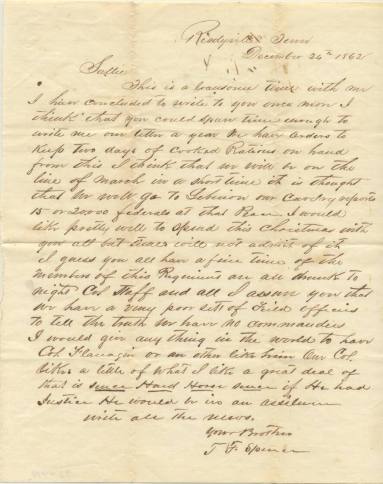 Readyville Tenn
December 24th 1862
Sallie
This is a lonsome time with me
I have concluded to write to you once more I
think that you could spare time enough to
write me one letter a year We have orders to
Keep two days of Cooked Rations on hand
from this I think that we will be on the
line of march in a short time it is thought
that we will go to Lebanon our Cavelry reports
15 or 20000 federals at that Place I would
like pretty well to spend this Christmas with
you all but will not admit of it
I guess you all have a fine time of the
members of this Regiment are all drunk to
night Col Staff and all I assure you that
we have a very poor sett of Field officers
to tell the truth we have no commanders
I would give any thing in the world to have
Col Flanagin or an other like him Our Col
likes a little of what I like a great deal of
that is since Hard Horse since if He had
Justice He would be in an assilum
write all the news.
Your Brother
T F Spence